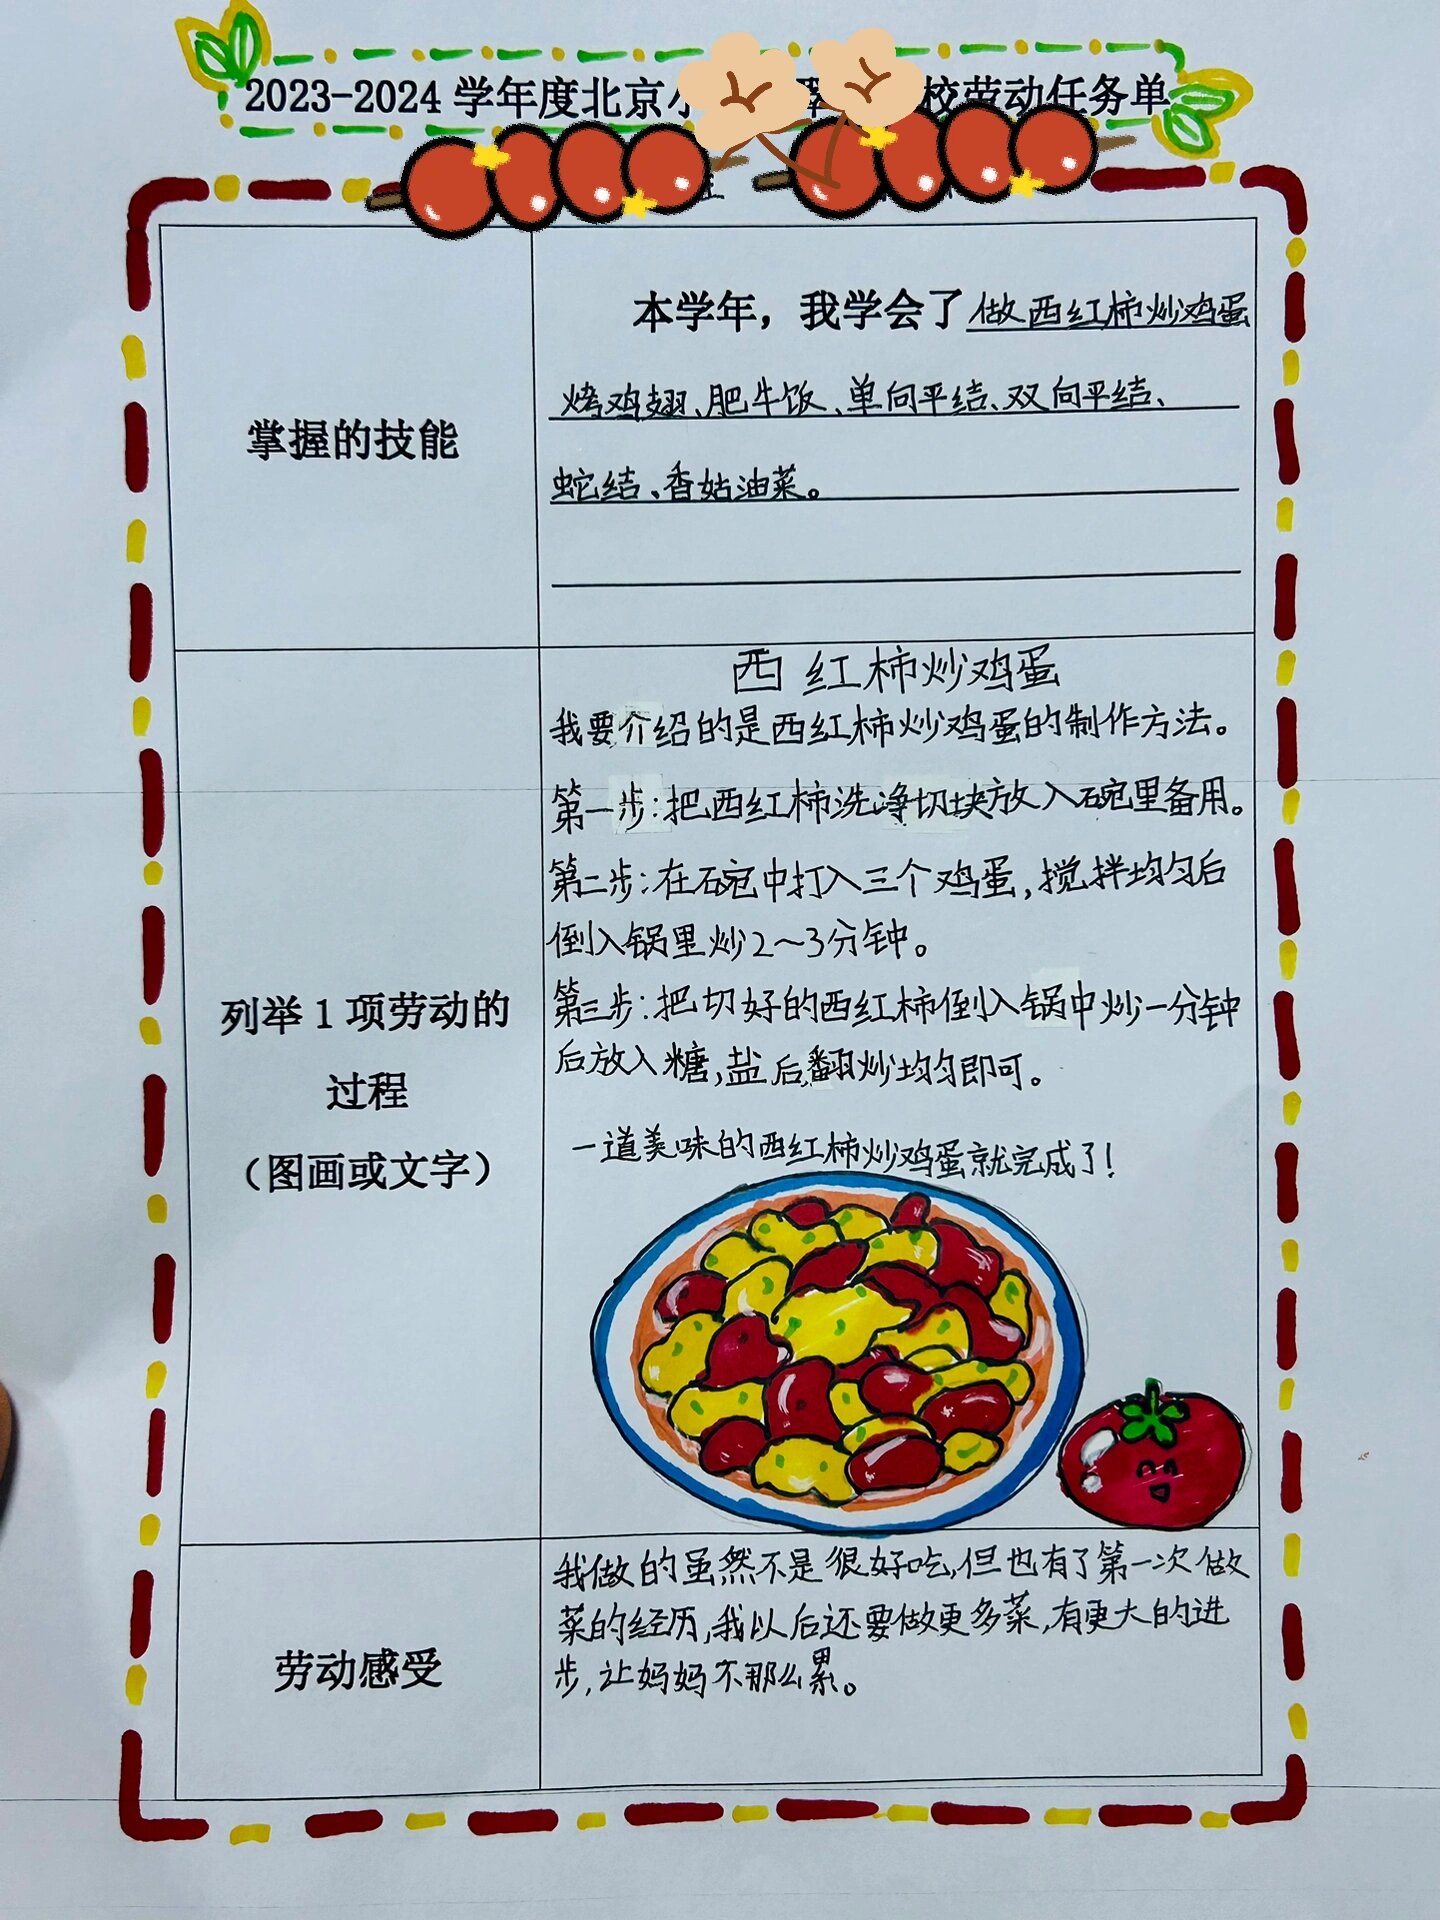 2023-2024 学年度北京小 校劳动任务单
掌握的技能
本学年，我学会了做西红柿炒鸡蛋
烤鸡翅、肥牛饭、单向平结、双向平结、
蛇结、香姑油菜。
列举 1 项劳动的
过程
（图画或文字）
西红柿炒鸡蛋
我要介绍的是西红柿炒鸡蛋的制作方法。
第一步:把西红柿洗净切块放入碗里备用。
第二步:在碗中打入三个鸡蛋,搅拌均匀后
倒入锅里炒2～3分钟。
第三步:把切好的西红柿倒入锅中炒一分钟
后放入糖,盐后翻炒均匀即可。
一道美味的西红柿炒鸡蛋就完成了!
劳动感受
我做的虽然不是很好吃,但也有了第一次做
菜的经历,我以后还要做更多菜,有更大的进
步,让妈妈不那么累。